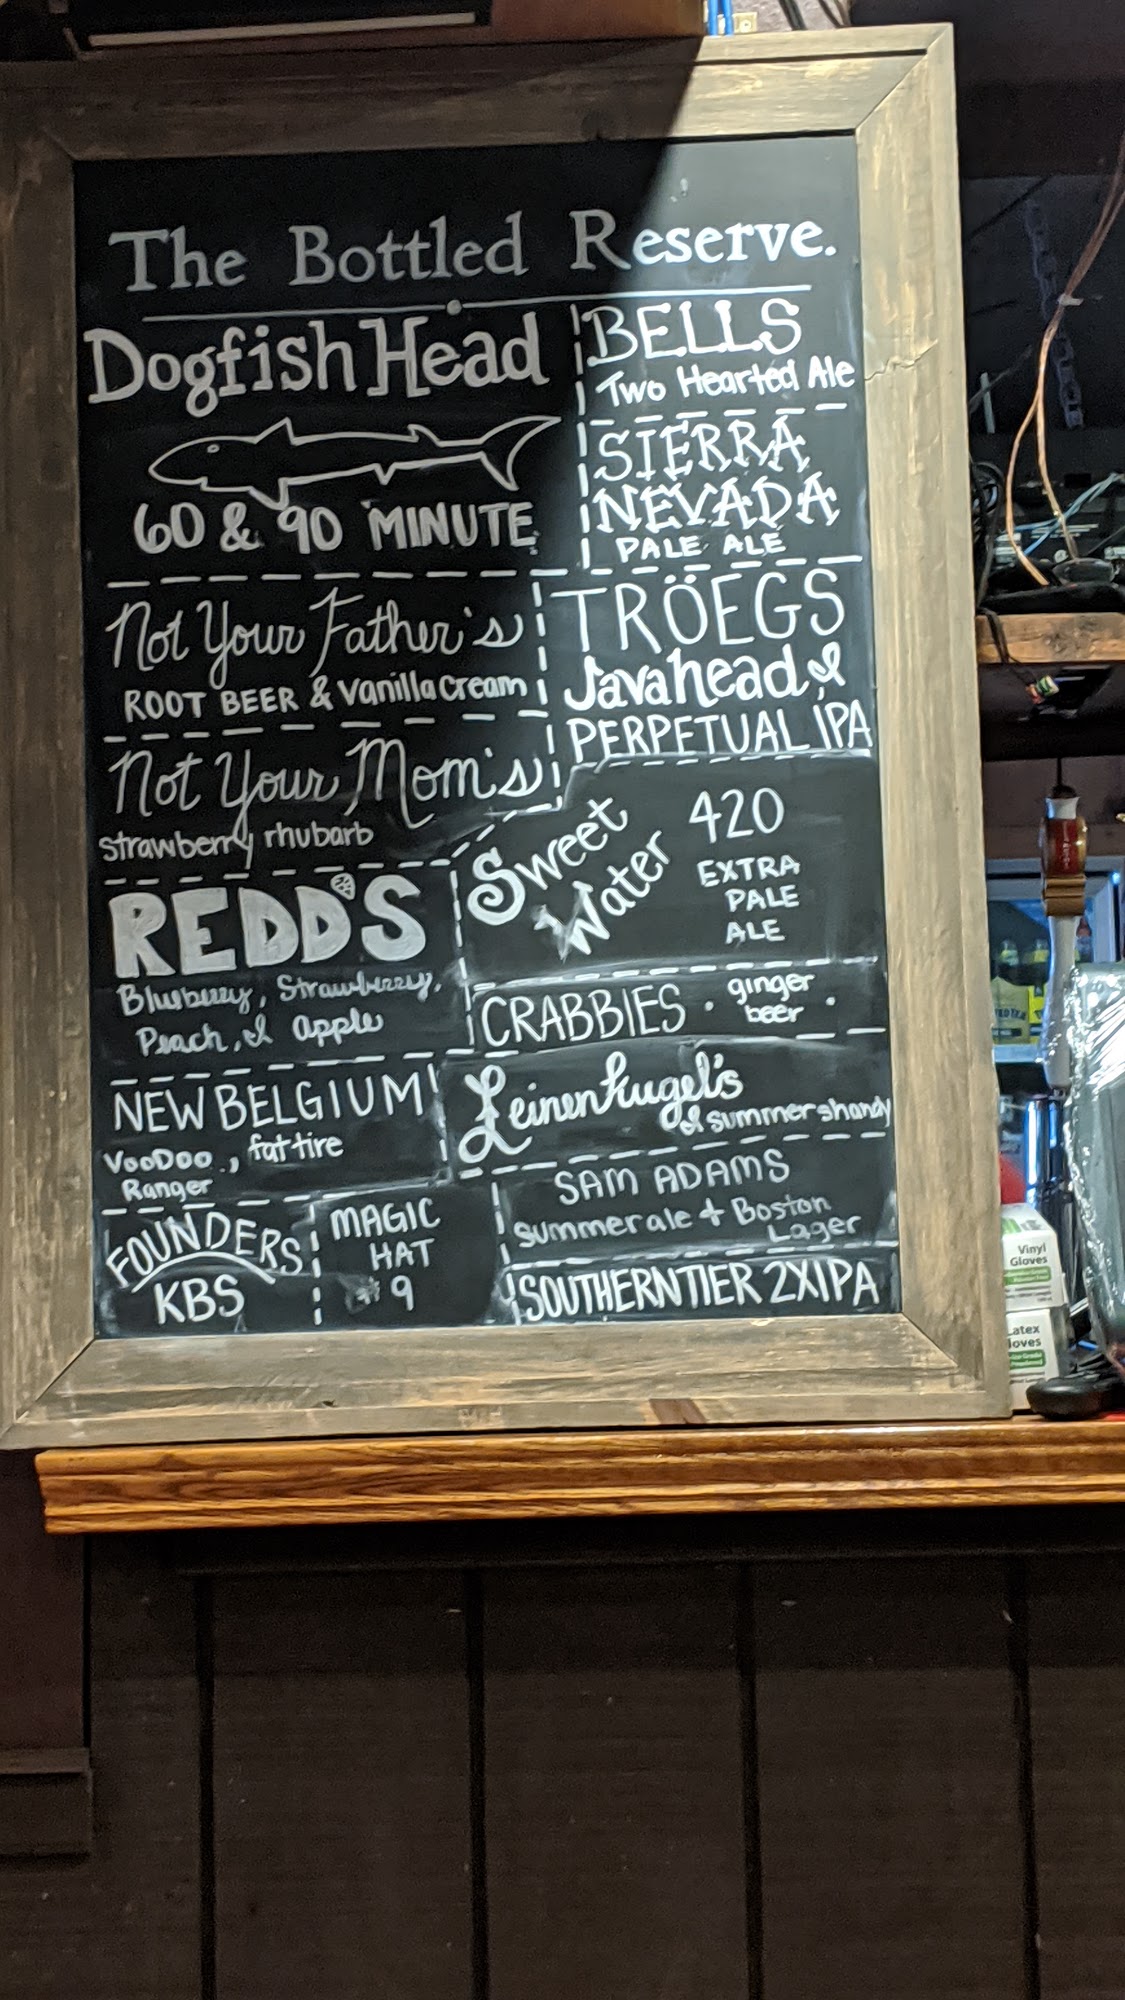 The Bottled Reserve.
Dogfish Head
60 & 90 MINUTE
BELLS
Two Hearted Ale
SIERRA
NEVADA
PALE ALE
Not Your Father's
ROOT BEER & Vanilla Cream
TRÖEGS
Javahead &
PERPETUAL IPA
Not Your Mom's
strawberry rhubarb
Sweet
Water
420
EXTRA
PALE
ALE
REDD'S
Blueberry, Strawberry,
Peach, & apple
CRABBIES · ginger
beer ·
NEW BELGIUM
VooDoo, fat tire
Ranger
Leinenkugel's
& summer shandy
SAM ADAMS
Summer ale + Boston
Lager
FOUNDERS
KBS
MAGIC
HAT
#9
SOUTHERN TIER 2XIPA
Vinyl
Gloves
Latex